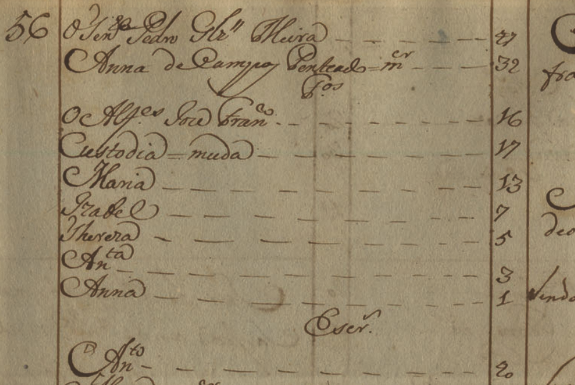 56 O Ten.te Pedro Glz Meira 27
Anna de Campos Penteado m.er 32
F.os
O Alf.es José Fran.co 16
Custodia = muda 17
Maria 13
Izabel 7
Thereza 5
An.ta 3
Anna 1
Escr.s
An.to 20